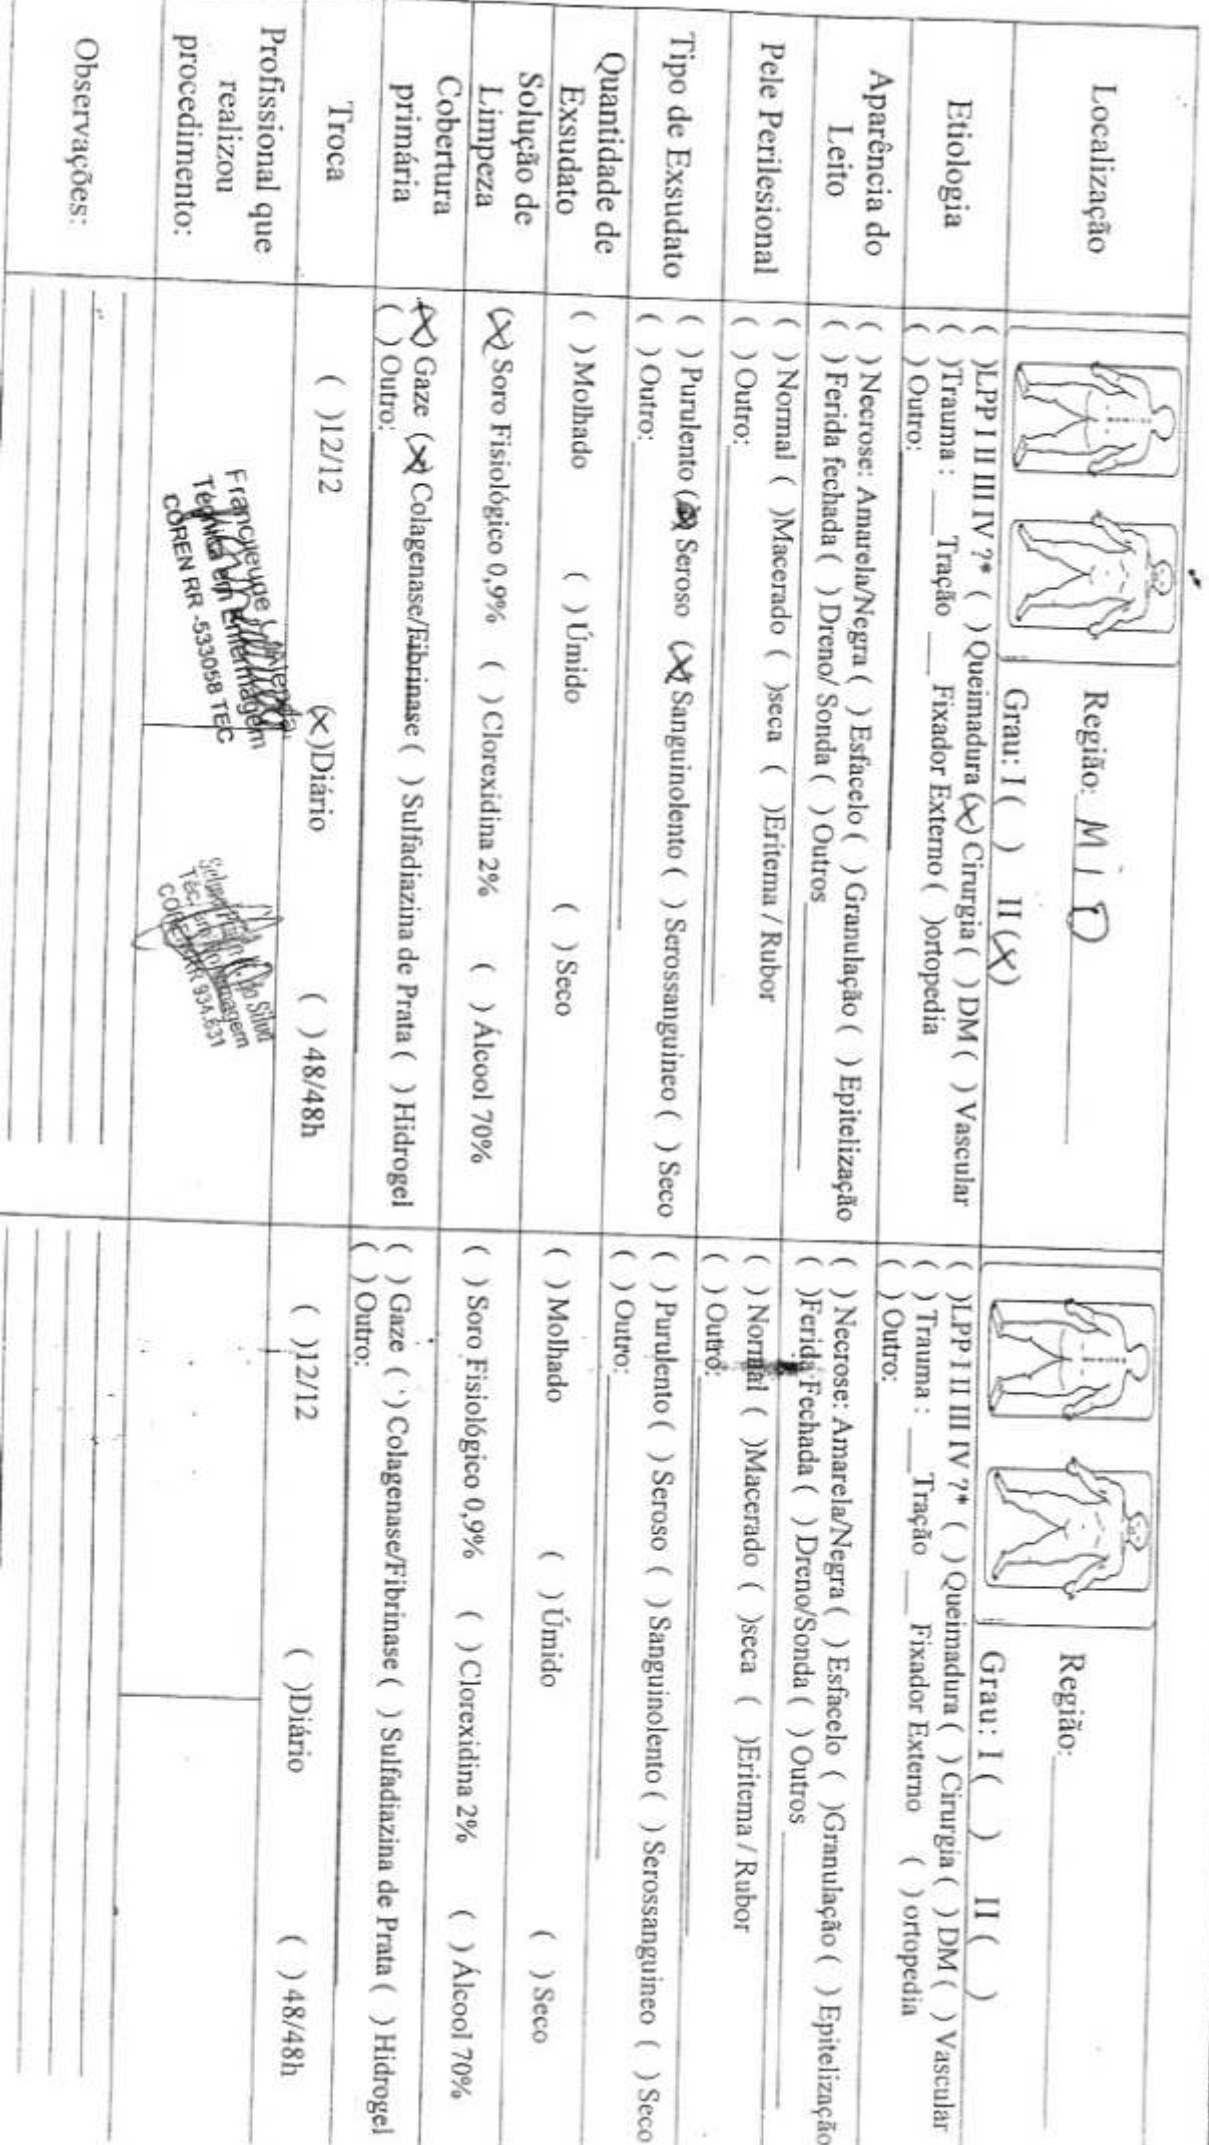 Localização
Região: MID
Grau: I ( ) II (X)
Região:
Grau: I ( ) II ( )
Etiologia
( )LPP I II III IV ?* ( )Queimadura (X) Cirurgia ( ) DM ( ) Vascular
( )Trauma : ___Tração ___ Fixador Externo ( )ortopedia
( ) Outro:
( )LPP I II III IV ?* ( ) Queimadura ( ) Cirurgia ( ) DM ( ) Vascular
( ) Trauma : ___Tração ___ Fixador Externo ( ) ortopedia
( ) Outro:
Aparência do
Leito
( ) Necrose: Amarela/Negra ( ) Esfacelo ( ) Granulação ( ) Epitelização
( ) Ferida fechada ( ) Dreno/ Sonda ( ) Outros
( ) Necrose: Amarela/Negra ( ) Esfacelo ( )Granulação ( ) Epitelização
( )Ferida Fechada ( ) Dreno/Sonda ( ) Outros
Pele Perilesional
( ) Normal ( )Macerado ( )seca ( )Eritema / Rubor
( ) Outro:
( ) Normal ( )Macerado ( )seca ( )Eritema / Rubor
( ) Outro:
Tipo de Exsudato
( ) Purulento ( ) Seroso (X) Sanguinolento ( ) Serossanguineo ( ) Seco
( ) Outro:
( ) Purulento ( ) Seroso ( ) Sanguinolento ( ) Serossanguineo ( ) Seco
( ) Outro:
Quantidade de
Exsudato
( ) Molhado ( ) Úmido ( ) Seco
( ) Molhado ( ) Úmido ( ) Seco
Solução de
Limpeza
(X) Soro Fisiológico 0,9% ( ) Clorexidina 2% ( ) Álcool 70%
( ) Soro Fisiológico 0,9% ( ) Clorexidina 2% ( ) Álcool 70%
Cobertura
primária
(X) Gaze (X) Colagenase/Fibrinase ( ) Sulfadiazina de Prata ( ) Hidrogel
( ) Outro:
( ) Gaze ( ) Colagenase/Fibrinase ( ) Sulfadiazina de Prata ( ) Hidrogel
( ) Outro:
Troca
( )12/12 (X)Diário ( ) 48/48h
( )12/12 ( )Diário ( ) 48/48h
Profissional que
realizou
procedimento:
Técnica em Enfermagem
COREN RR -533058 TEC
da Silva
Téc. em Enfermagem
COREN RR 934.631
Observações: